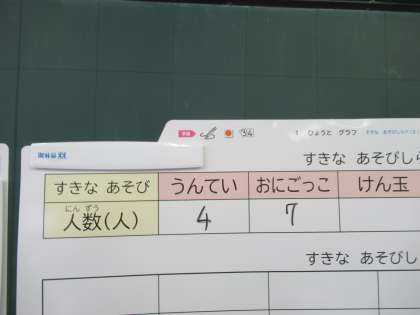 1 ひょうと グラフ
すきな あそびしら
すきな あそび うんてい おにごっこ けん玉
にん ずう
人数(人) 4 7
すきな あそびし